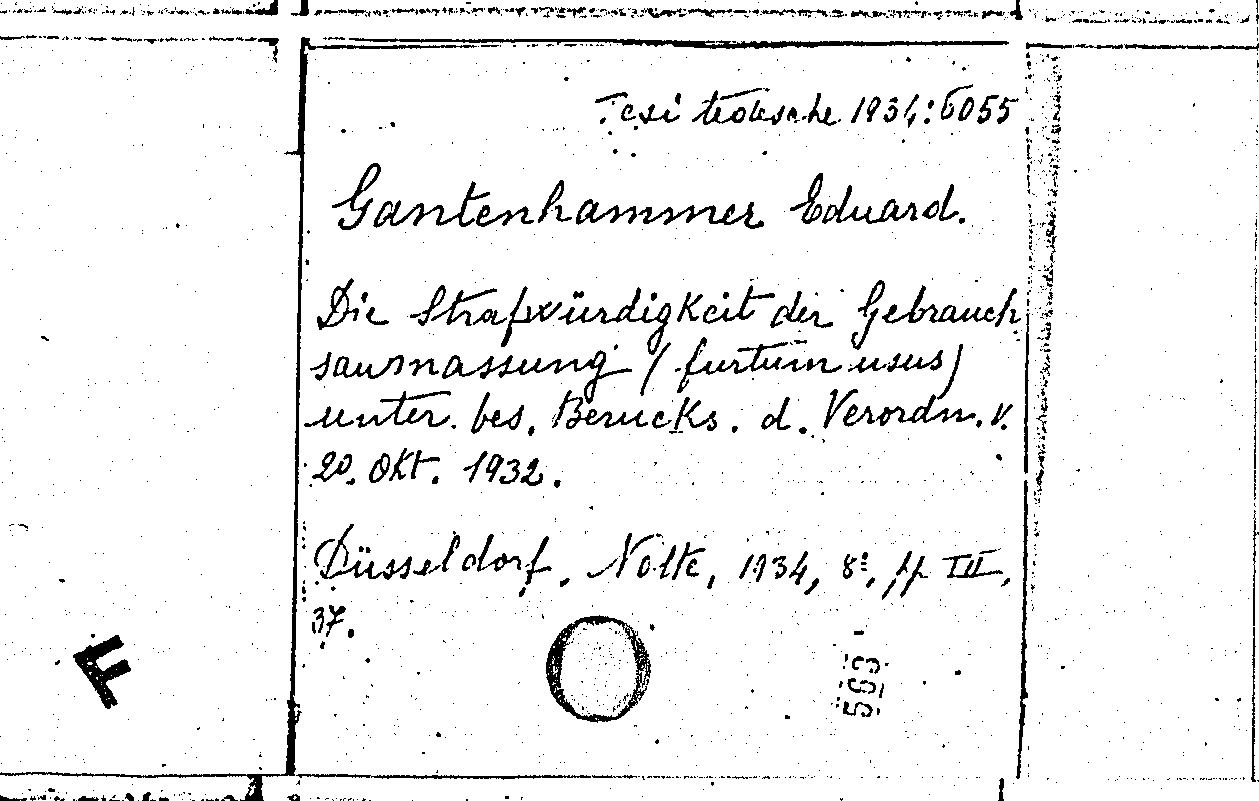 Tesi tedesche 1934: 6055
Gantenhammer Eduard.
Die Strafwürdigkeit der Gebrauch
sausmassung (furtum usus)
unter bes. Berucks. d. Verordn. v.
20. Okt. 1932.
Düsseldorf, Nolte, 1934, 8º, pp III,
37.
F
503